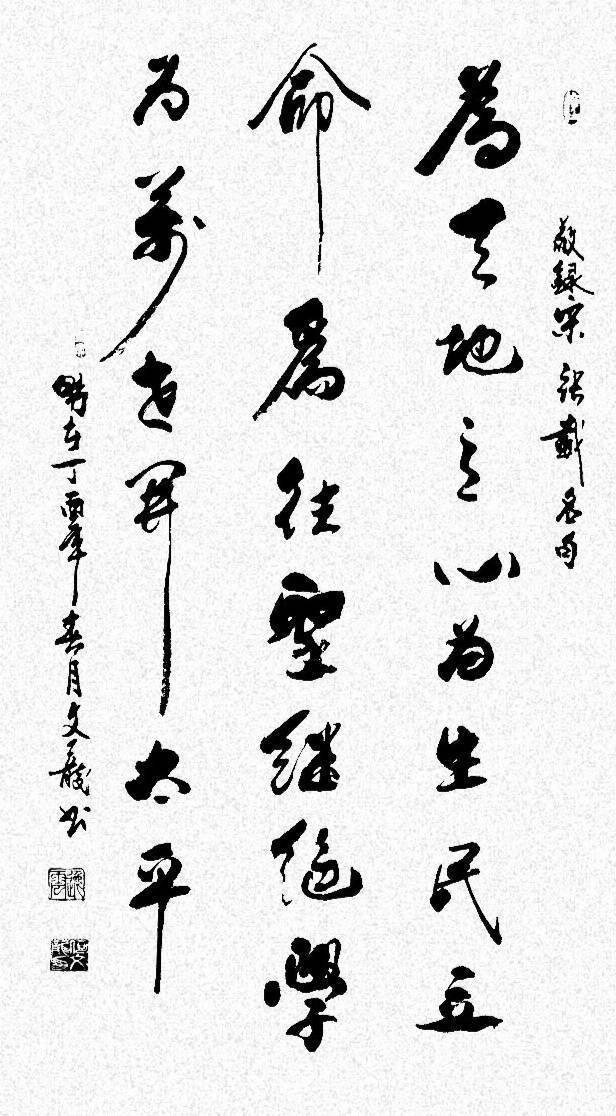 敬録宋張載名句
為天地立心为生民立
命為往聖繼絕學
为萬世開太平
時在丁酉年春月文书